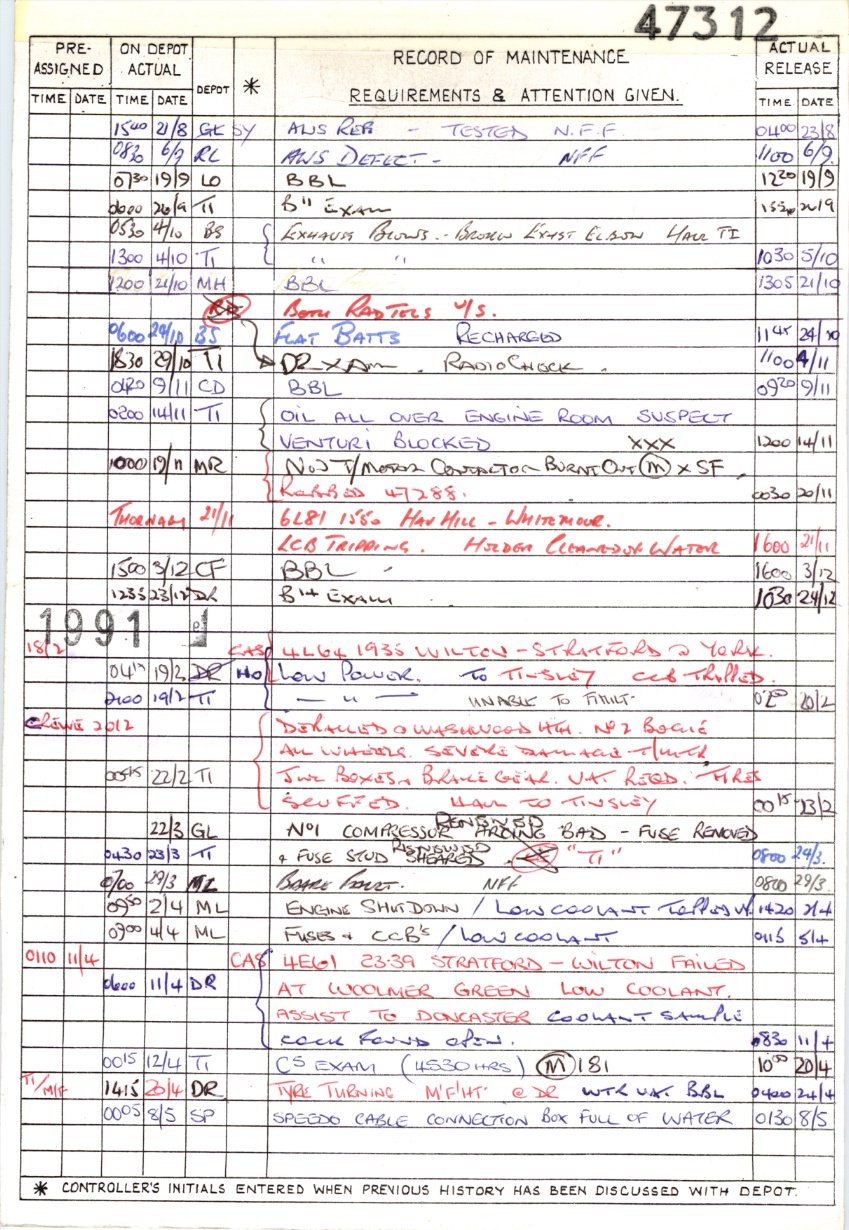 47312
PRE-ASSIGNED ON DEPOT ACTUAL DEPOT * RECORD OF MAINTENANCE REQUIREMENTS & ATTENTION GIVEN. ACTUAL RELEASE
TIME DATE TIME DATE TIME DATE
1540 21/8 GK SY AWS REP - TESTED N.F.F. 0400 23/8
0830 6/9 RL AWS DEFECT - NFF 1100 6/9
0730 19/9 LO BBL 1220 19/9
0600 26/9 TI B" EXAM 26/9
0530 4/10 BS EXHAUST BLOWS - BROKEN EXHST ELBOW HAUL TI
1300 4/10 TI " " 1030 5/10
1200 21/10 MH BBL 1305 21/10
BOTH RADTELS U/S.
0600 24/10 BS FLAT BATTS RECHARGED 1145 24/10
1830 29/10 TI DR XAM. RADIO CHECK. 1100 4/11
0420 9/11 CD BBL 0920 9/11
0200 14/11 TI OIL ALL OVER ENGINE ROOM SUSPECT
VENTURI BLOCKED XXX 1200 14/11
1000 19/11 MR T/MOTOR CONTACTOR BURNT OUT (M) X SF.
47288. 0030 20/11
21/11 6L81 1550 HAV HILL - WHITEMOUR.
TRIPPING. HOLDER CLEANED OF WATER 1600 21/11
1500 3/12 CF BBL 1600 3/12
1235 23/12 DR B" EXAM 1030 24/12
1991
18/2 CAS 4L64 1935 WILTON - STRATFORD @ YORK.
04 19/2 DR HO LOW POWER. TO TINSLEY CCB TRIPPED.
2100 19/2 TI - " - UNABLE TO FAULT. 20/2
CREWE 2012 DERAILED @ WASHWOOD HTH. NO 2 BOGIE
ALL WHEELS. SEVERE DAMAGE T/MTR
0015 22/2 TI JNC BOXES & BRAKE GEAR. VAT REQD. TIRES
SCUFFED. HAUL TO TINSLEY 0015 23/2
22/3 GL NO1 COMPRESSOR RENEWED ARCING BAD - FUSE REMOVED
0430 23/3 TI & FUSE STUD RENEWED SHEARED. "TI" 0800 24/3.
0700 29/3 ML BRAKE FAULT. NFF 0800 29/3.
0950 2/4 ML ENGINE SHUTDOWN / LOW COOLANT TOPPED UP. 1420 2/4
0900 4/4 ML FUSES & CCB's / LOW COOLANT 0115 5/4
0110 11/4 CAS 4E61 23.39 STRATFORD - WILTON FAILED
0600 11/4 DR AT WOOLMER GREEN LOW COOLANT.
ASSIST TO DONCASTER COOLANT SAMPLE
COCK FOUND OPEN. 0830 11/4
0015 12/4 TI CS EXAM (4530 HRS) (M) 181 1000 20/4
TI/M/F 1415 20/4 DR TYRE TURNING M'F'HT. @ DR WTR VAT BBL 0400 24/4
0005 8/5 SP SPEEDO CABLE CONNECTION BOX FULL OF WATER 0130 8/5
* CONTROLLER'S INITIALS ENTERED WHEN PREVIOUS HISTORY HAS BEEN DISCUSSED WITH DEPOT.